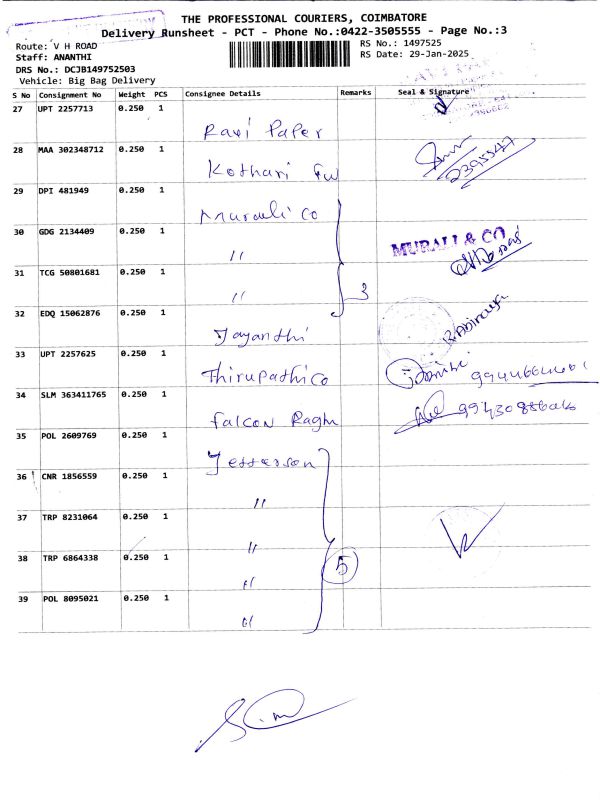 THE PROFESSIONAL COURIERS, COIMBATORE
Delivery Runsheet - PCT - Phone No.:0422-3505555 - Page No.:3
Route: V H ROAD
RS No.: 1497525
Staff: ANANTHI
RS Date: 29-Jan-2025
DRS No.: DCJB149752503
Vehicle: Big Bag Delivery
S No Consignment No Weight PCS Consignee Details Remarks Seal & Signature
27 UPT 2257713 0.250 1
Ravi Paper
28 MAA 302348712 0.250 1
Kothari
29 DPI 481949 0.250 1
Murali Co
30 GDG 2134409 0.250 1
MURALI & CO
"
31 TCG 50801681 0.250 1
" 3
32 EDQ 15062876 0.250 1
Jayanthi
33 UPT 2257625 0.250 1
Thirupathi Co
34 SLM 363411765 0.250 1
Falcon Raghu
35 POL 2609769 0.250 1
Jefferson
36 CNR 1856559 0.250 1
"
37 TRP 8231064 0.250 1
"
38 TRP 6864338 0.250 1
5
"
39 POL 8095021 0.250 1
"